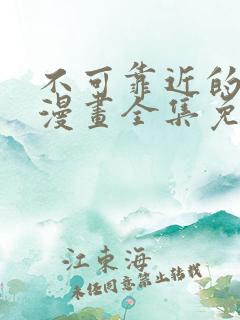 不可靠近的
漫畫全集免
江東海
未经同意禁止转载